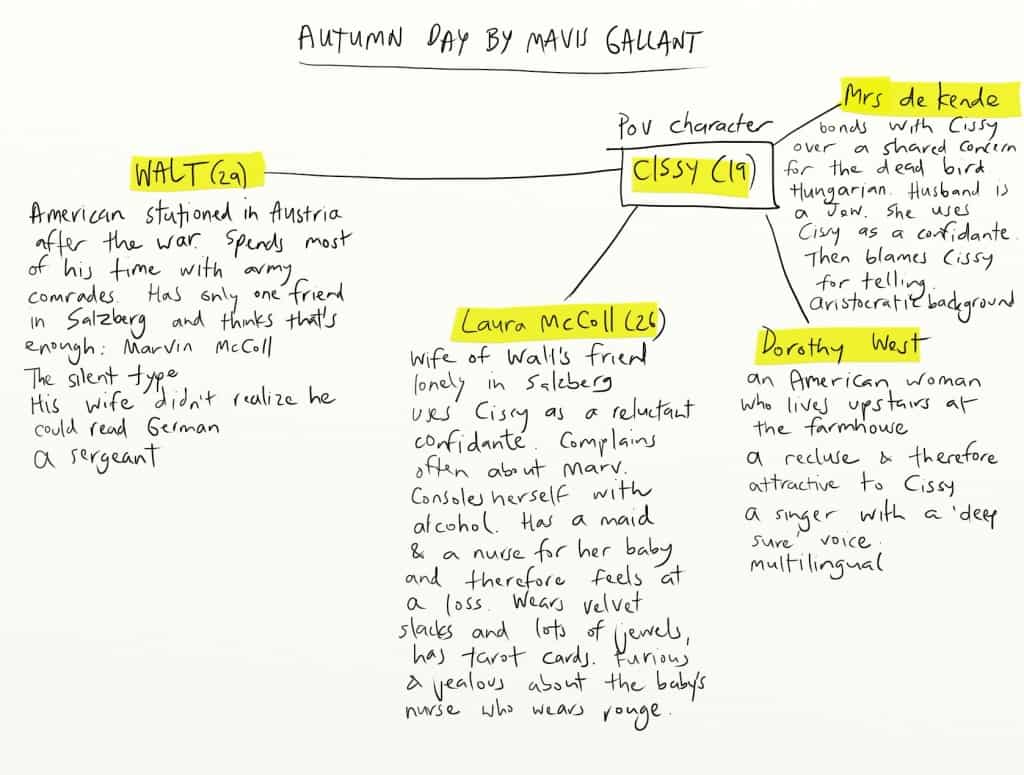 AUTUMN DAY BY MAVIS GALLANT
POV character
CISSY (19)
WALT (29)
American stationed in Austria
after the war. Spends most
of his time with army
comrades. Has only one friend
in Salzberg and thinks that's
enough: Marvin McColl
The silent type
His wife didn't realize he
could read German
a sergeant
Laura McColl (26)
wife of Walt's friend
lonely in Salzberg
uses Cissy as a reluctant
confidante. Complains
often about Marv.
Consoles herself with
alcohol. Has a maid
& a nurse for her baby
and therefore feels at
a loss. Wears velvet
slacks and lots of jewels,
has tarot cards. Furious
& jealous about the baby's
nurse who wears rouge.
Mrs de Kende
bonds with Cissy
over a shared concern
for the dead bird
Hungarian. Husband is
a Jew. She uses
Cissy as a confidante.
Then blames Cissy
for telling.
aristocratic background
Dorothy West
an American woman
who lives upstairs at
the farmhouse
a recluse & therefore
attractive to Cissy
a singer with a 'deep
sure' voice.
multilingual